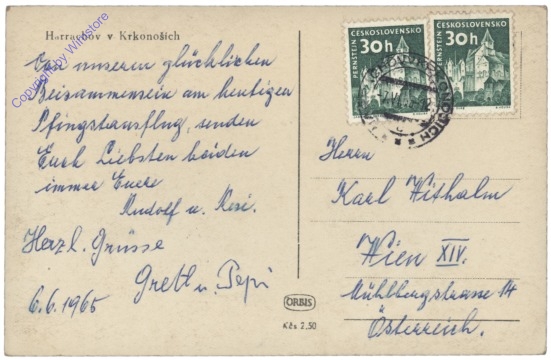 Harrachov v Krkonoších
Copyright by Wiffstore
Von unseren glücklichen
Beisammensein am heutigen
Pfingstausflug, senden
Euch Liebsten beiden
immer Eucre
Rudolf u. Resi.
Herzl. Grüsse
Gretl u. Pepi
6.6.1965
PERNŠTEJN
ČESKOSLOVENSKO
30h
PERNŠTEJN
ČESKOSLOVENSKO
30h
Herrn
Karl Withalm
Wien XIV.
Mühlbergstrasse 14
Österreich.
ORBIS
Kčs 2,50